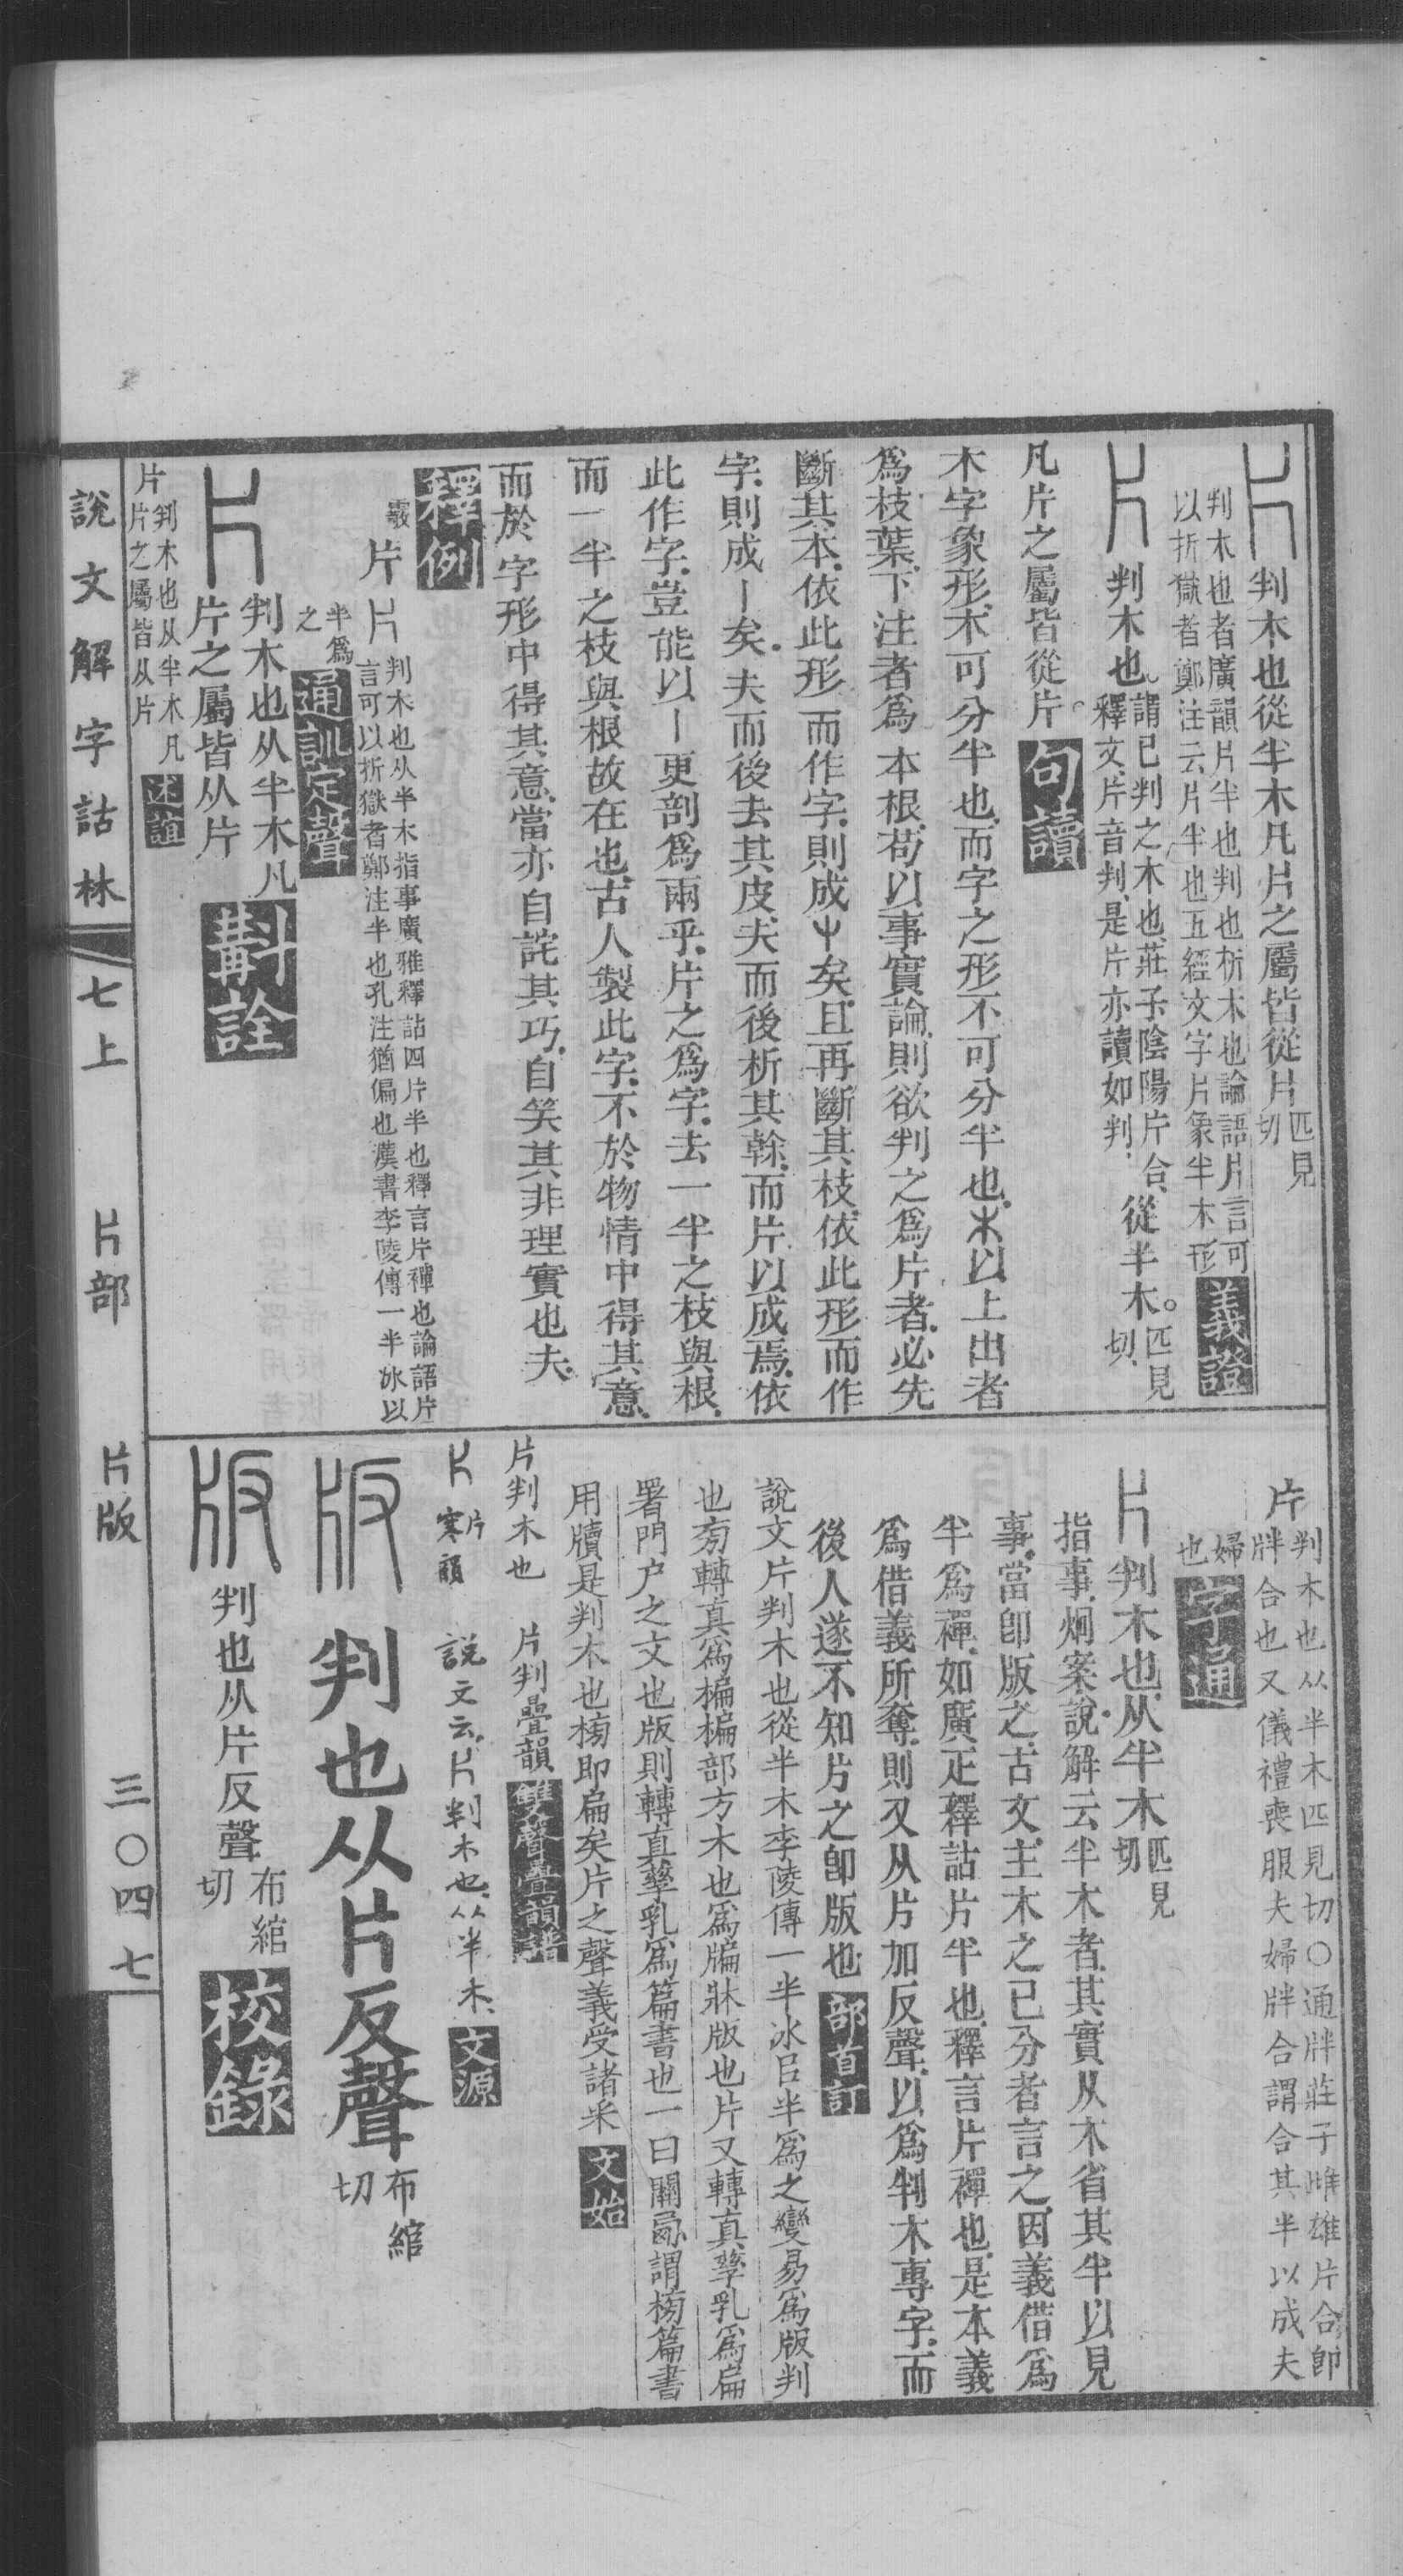 判木也從半木凡片之屬皆從片匹見切
判木也者廣韻片半也判也析木也論語片言可
以折獄者鄭注云片半也五經文字片象半木形義證
判木也謂已判之木也莊子陰陽片合從半木匹見切
釋文片音判是片亦讀如判
凡片之屬皆從片句讀
木字象形木可分半也而字之形不可分半也木以上出者
爲枝葉下注者爲本根苟以事實論則欲判之爲片者必先
斷其本依此形而作字則成屮矣且再斷其枝依此形而作
字則成丨矣夫而後去其皮夫而後析其榦而片以成焉依
此作字豈能以丨更剖爲兩乎片之爲字去一半之枝與根
而一半之枝與根故在也古人製此字不於物情中得其意
而於字形中得其意當亦自詫其巧自笑其非理實也夫
釋例
片
判木也从半木指事廣雅釋詁四片半也釋言片襌也論語片
言可以折獄者鄭注半也孔注猶偏也漢書李陵傳一半冰以
半爲之通訓定聲
判木也从半木凡
片之屬皆从片斠詮
片判木也从半木凡
片之屬皆从片述誼
片判木也从半木匹見切〇通牉莊子雌雄片合卽
牉合也又儀禮喪服夫婦牉合謂合其半以成夫
婦也字通
判木也从半木匹見切
指事烱案說解云半木者其實从木省其半以見
事當卽版之古文主木之已分者言之因義借爲
半爲襌如廣疋釋詁片半也釋言片襌也是本義
爲借義所奪則又从片加反聲以爲判木專字而
後人遂不知片之卽版也部首訂
說文片判木也從半木李陵傳一半冰臣半爲之變易爲版判
也旁轉真爲楄楄部方木也爲牑牀版也片又轉真孳乳爲扁
署門户之文也版則轉真孳乳爲篇書也一曰關西謂榜篇書
用牘是判木也榜即扁矣片之聲義受諸釆文始
片判木也　片判疊韻雙聲疊韻譜
片寒韻　説文云片判木也从半木文源
判也从片反聲布綰切
判也从片反聲布綰切校錄
說文解字詁林　七上　片部　片版　三〇四七